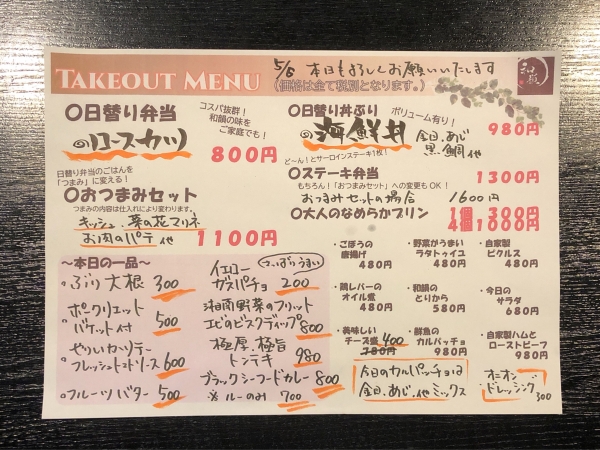 TAKEOUT MENU
5/6 本日もよろしくお願いいたします
(価格は全て税別となります。)
和韻
〇日替り弁当
コスパ抜群!
和韻の味を
ご家庭でも!
のロースカツ
800円
日替り弁当のごはんを
「つまみ」に変える!
〇おつまみセット
つまみの内容は仕入れにより変わります。
キッシュ、菜の花マリネ
お肉のパテ 他
1100円
〇日替り丼ぶり
ボリューム有り!
の海鮮丼
金目、あじ
黒鯛 他
980円
ど~ん!とサーロインステーキ1枚!
〇ステーキ弁当
1300円
もちろん!「おつまみセット」への変更もOK!
おつまみセットの場合 1600円
〇大人のなめらかプリン
1個 300円
4個 1000円
~本日の一品~
・ぶり大根 300
・ポークリエット
バケット付 500
・やりいかソテー
フレッシュトマトソース 600
・フルーツバター 500
・イエロー
ガスパチョ 200
さっぱりうまい
・湘南野菜のフリット
エビのビスクディップ 800
・極厚、極旨
トンテキ 980
・ブラックシーフードカレー 800
※ルーのみ 700
・ごぼうの
唐揚げ
480円
・野菜がうまい
ラタトゥイユ
480円
・自家製
ピクルス
480円
・鶏レバーの
オイル煮
480円
・和韻の
とりから
580円
・今日の
サラダ
680円
・美味しい
チーズ盛 400
780円
・鮮魚の
カルパッチョ
980円
・自家製ハムと
ローストビーフ
980円
今日のカルパッチョは
金目、あじ、他ミックス
オニオン
ドレッシング
300